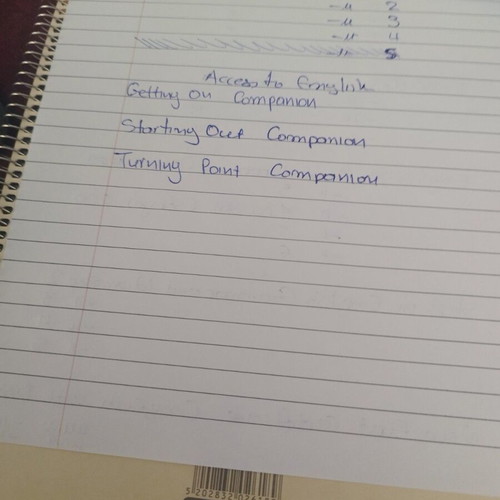 -11 2
-11 3
-11 4
-11 5
Access to English
Getting On Companion
Starting Out Companion
Turning Point Companion